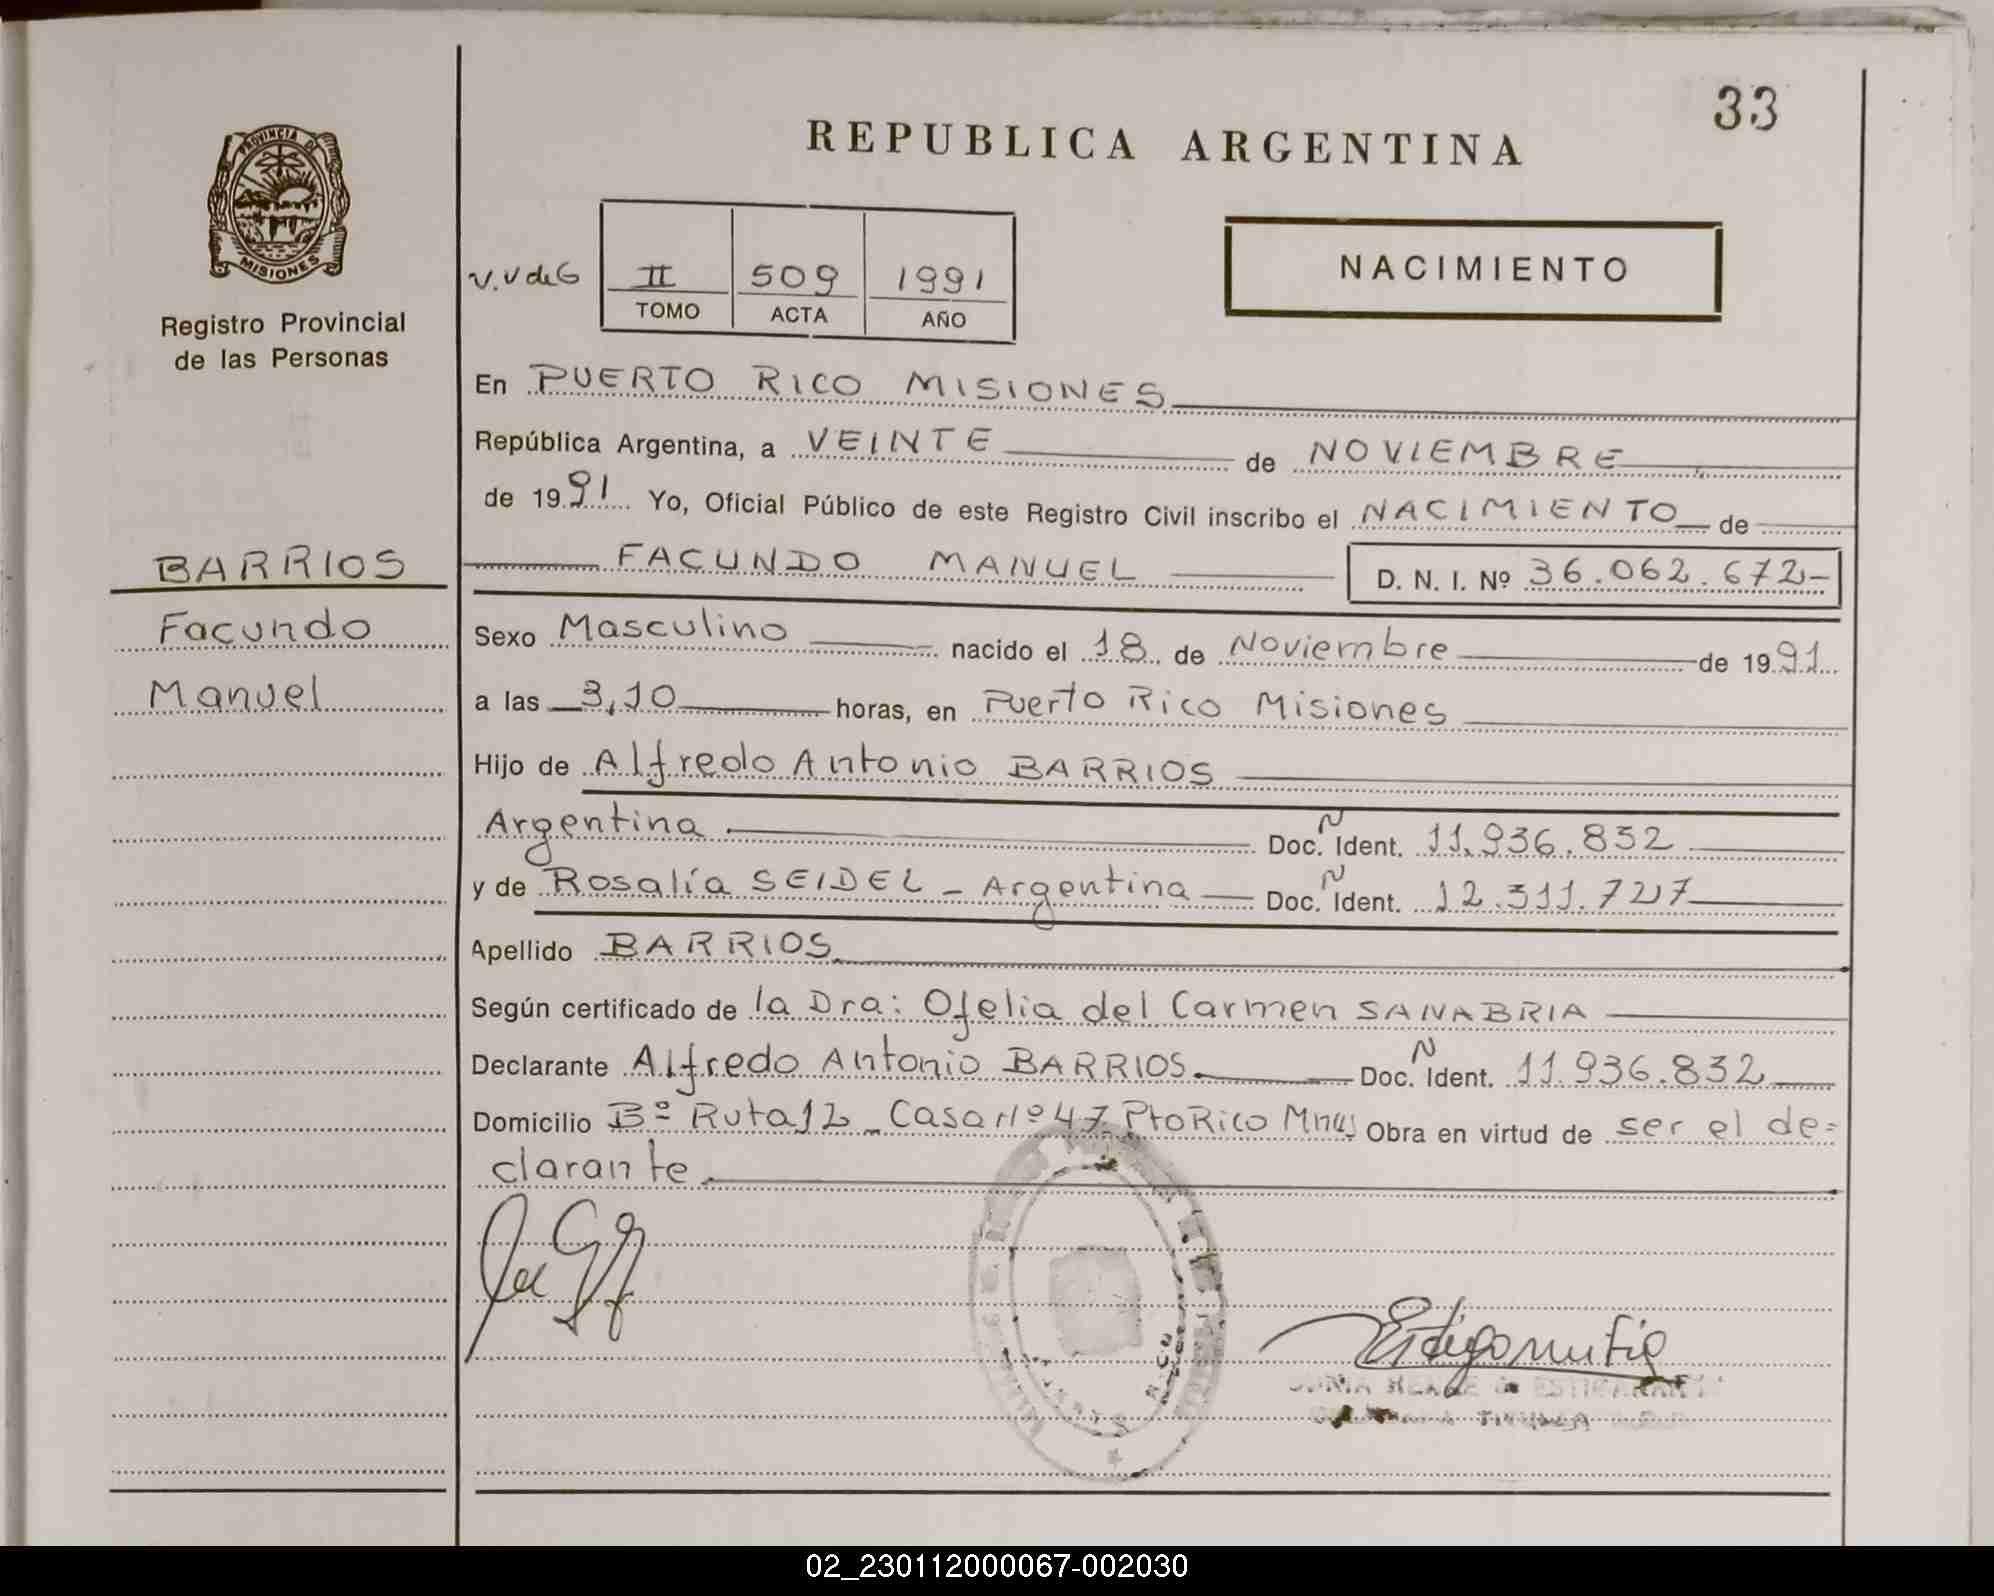 33
REPUBLICA ARGENTINA
PROVINCIA DE
MISIONES
Registro Provincial
de las Personas
V.V de G II 509 1991
TOMO ACTA AÑO
NACIMIENTO
En PUERTO RICO MISIONES
República Argentina, a VEINTE de NOVIEMBRE
de 1991 Yo, Oficial Público de este Registro Civil inscribo el NACIMIENTO de
FACUNDO MANUEL D. N. I. Nº 36.062.672-
BARRIOS
Facundo
Manuel
Sexo Masculino nacido el 18 de Noviembre de 1991
a las 3,10 horas, en Puerto Rico Misiones
Hijo de Alfredo Antonio BARRIOS
Argentina Doc. N Ident. 11.936.832
y de Rosalía SEIDEL - Argentina Doc. N Ident. 12.311.727
Apellido BARRIOS
Según certificado de la Dra: Ofelia del Carmen SANABRIA
Declarante Alfredo Antonio BARRIOS Doc. N Ident. 11.936.832
Domicilio Bº Ruta 12 - Casa Nº 47 Pto Rico Mnes Obra en virtud de ser el de=
clarante
02_230112000067-002030